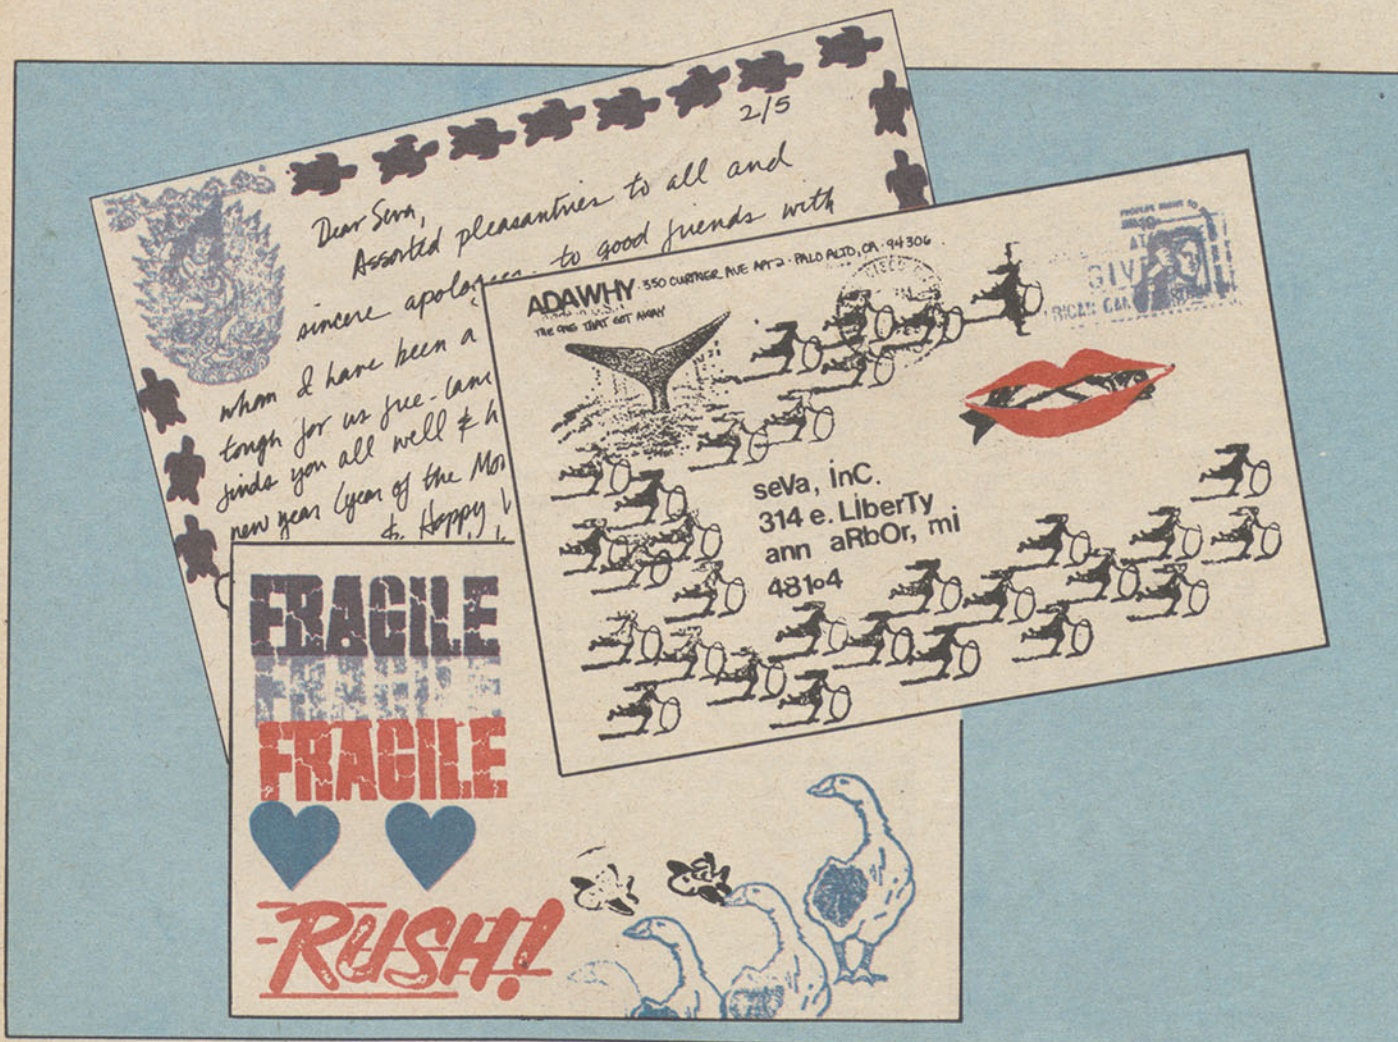 2/5
Dear Seva,
Assorted pleasantries to all and
sincere apologies to good friends with
whom I have been a
tough for us free-lanc
finds you all well & h
new year (year of the Mo
& Happy
ADAWHY · 550 CURTNER AVE APT 2 · PALO ALTO, CA · 94306
THE ONE THAT GOT AWAY
GIV
RICAN CAN
seVa, inC.
314 e. LIberTy
ann aRbOr, mi
48104
FRAGILE
FRAGILE
FRAGILE
RUSH!